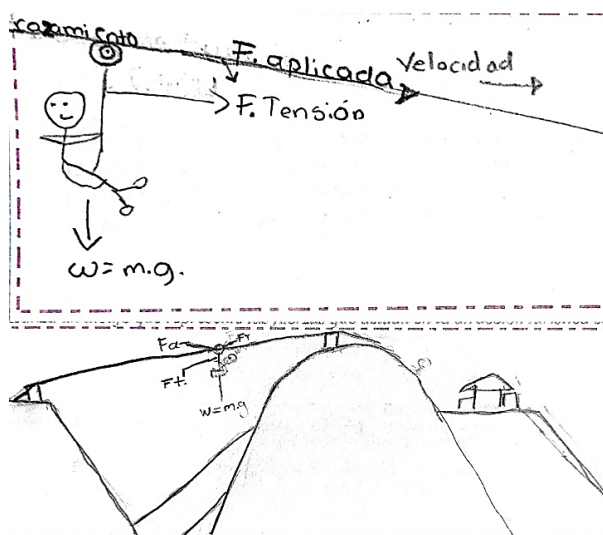 rozamiento
F. aplicada
Velocidad
F. Tensión
w = m.g.
Fa
Fr
Ft.
w=m.g